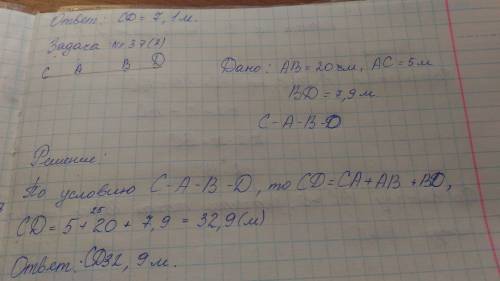 Ответ: CD = 7,1 м.
Задача № 37(2)
C A B D
Дано: AB = 20 м, AC = 5 м
BD = 7,9 м
C-A-B-D
Решение:
По условию C-A-B-D, то CD = CA + AB + BD,
25
CD = 5 + 20 + 7,9 = 32,9 (м)
Ответ: CD 32, 9 м.